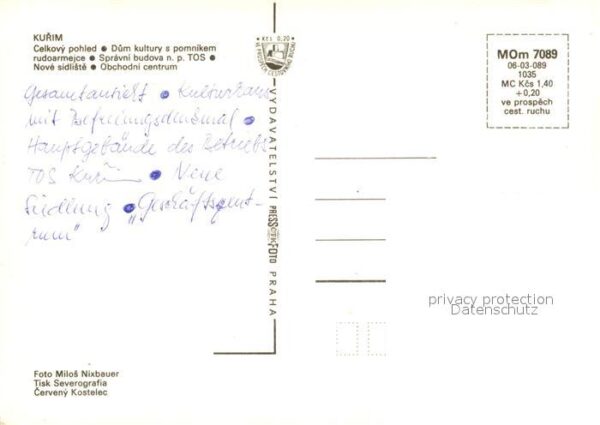 KUŘIM
Celkový pohled ● Dům kultury s pomníkem
rudoarmejce ● Správní budova n. p. TOS ●
Nové sídliště ● Obchodní centrum
Gesamtansicht ● Kulturhaus
mit Befreiungsdenkmal ●
Hauptgebäude des Betriebs
TOS Kuřim ● Neue
Siedlung ● „Geschäftszent-
rum"
Foto Miloš Nixbauer
Tisk Severografia
Červený Kostelec
Kčs 0,20
VE PROSPĚCH CESTOVNÍHO RUCHU
VYDAVATELSTVÍ PRESSFOTO PRAHA
MOm 7089
06-03-089
1035
MC Kčs 1,40
+0,20
ve prospěch
cest. ruchu
privacy protection
Datenschutz